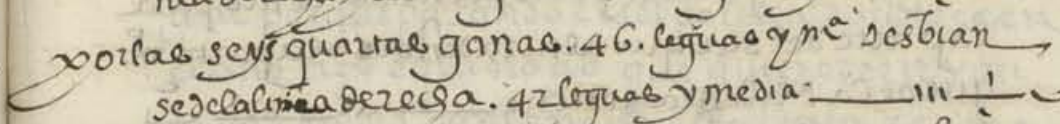 por las seys quartas ganas. 46. leguas y mª desbian
se de la linea derecha. 42 leguas y media